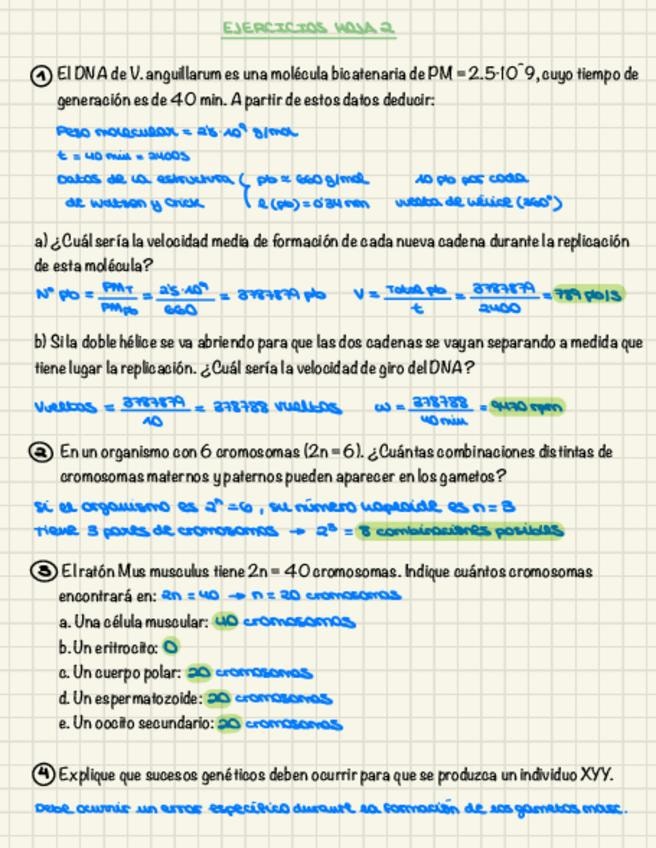 EJERCICIOS HOJA 2
1 El DNA de V. anguillarum es una molécula bicatenaria de PM = 2.5·10^9, cuyo tiempo de
generación es de 40 min. A partir de estos datos deducir:
Peso molecular = 2'5·10⁹ g/mol
t = 40 min = 2400s
Datos de la estructura { pb ≈ 660 g/mol 10 pb por cada
de Watson y Crick l (pb) = 0'34 nm vuelta de hélice (360°)
a) ¿Cuál sería la velocidad media de formación de cada nueva cadena durante la replicación
de esta molécula?
Nº pb = PM_T / PM_pb = 2'5·10⁹ / 660 = 3787879 pb V = Total pb / t = 3787879 / 2400 = 789 pb/s
b) Si la doble hélice se va abriendo para que las dos cadenas se vayan separando a medida que
tiene lugar la replicación. ¿Cuál sería la velocidad de giro del DNA?
Vueltas = 3787879 / 10 = 378788 vueltas ω = 378788 / 40 min = 9470 rpm
2 En un organismo con 6 cromosomas (2n = 6). ¿Cuántas combinaciones distintas de
cromosomas maternos y paternos pueden aparecer en los gametos?
Si el organismo es 2ⁿ = 6, su número haploide es n = 3
Tiene 3 pares de cromosomas → 2³ = 8 combinaciones posibles
3 El ratón Mus musculus tiene 2n = 40 cromosomas. Indique cuántos cromosomas
encontrará en: 2n = 40 → n = 20 cromosomas
a. Una célula muscular: 40 cromosomas
b. Un eritrocito: 0
c. Un cuerpo polar: 20 cromosomas
d. Un espermatozoide: 20 cromosomas
e. Un oocito secundario: 20 cromosomas
4 Explique que sucesos genéticos deben ocurrir para que se produzca un individuo XYY.
Debe ocurrir un error específico durante la formación de los gametos masc.